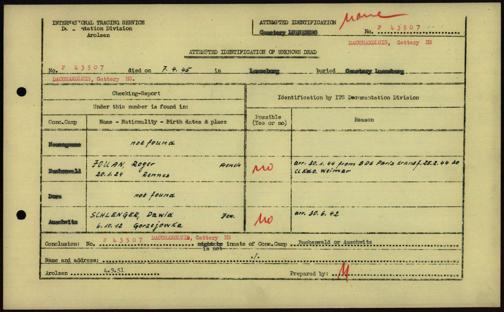 INTERNATIONAL TRACING SERVICE
Documentation Division
Arolsen
ATTEMPTED IDENTIFICATION
None
Cemetery LUENEBURG
No. P 43507
DACHMANHSHIR, Cettery BN
ATTEMPTED IDENTIFICATION OF UNKNOWN DEAD
No. P 43507 died on 7.4.45 in Lueneburg Buried Cemetery Lueneburg
Checking-Report
Under this number is found in:
Identification by ITS Documentation Division
Conc.Camp
Name - Nationality - Birth dates & place
Possible (Yes or no)
Reason
Neuengamme
not found
Buchenwald
Roger French
20.1.24 Rennes
no
arr. 20.1.44 from BDS Paris transf. 25.2.44 to
Weimar
Dora
not found
Auschwitz
SCHLENGER, Dawid Jew.
6.10.42
no
arr. 30.6.42
Conclusion: No. P 43507 might be inmate of Conc.Camp Buchenwald or Auschwitz
is not
Name and address: ./.
Arolsen 4.9.51
Prepared by: